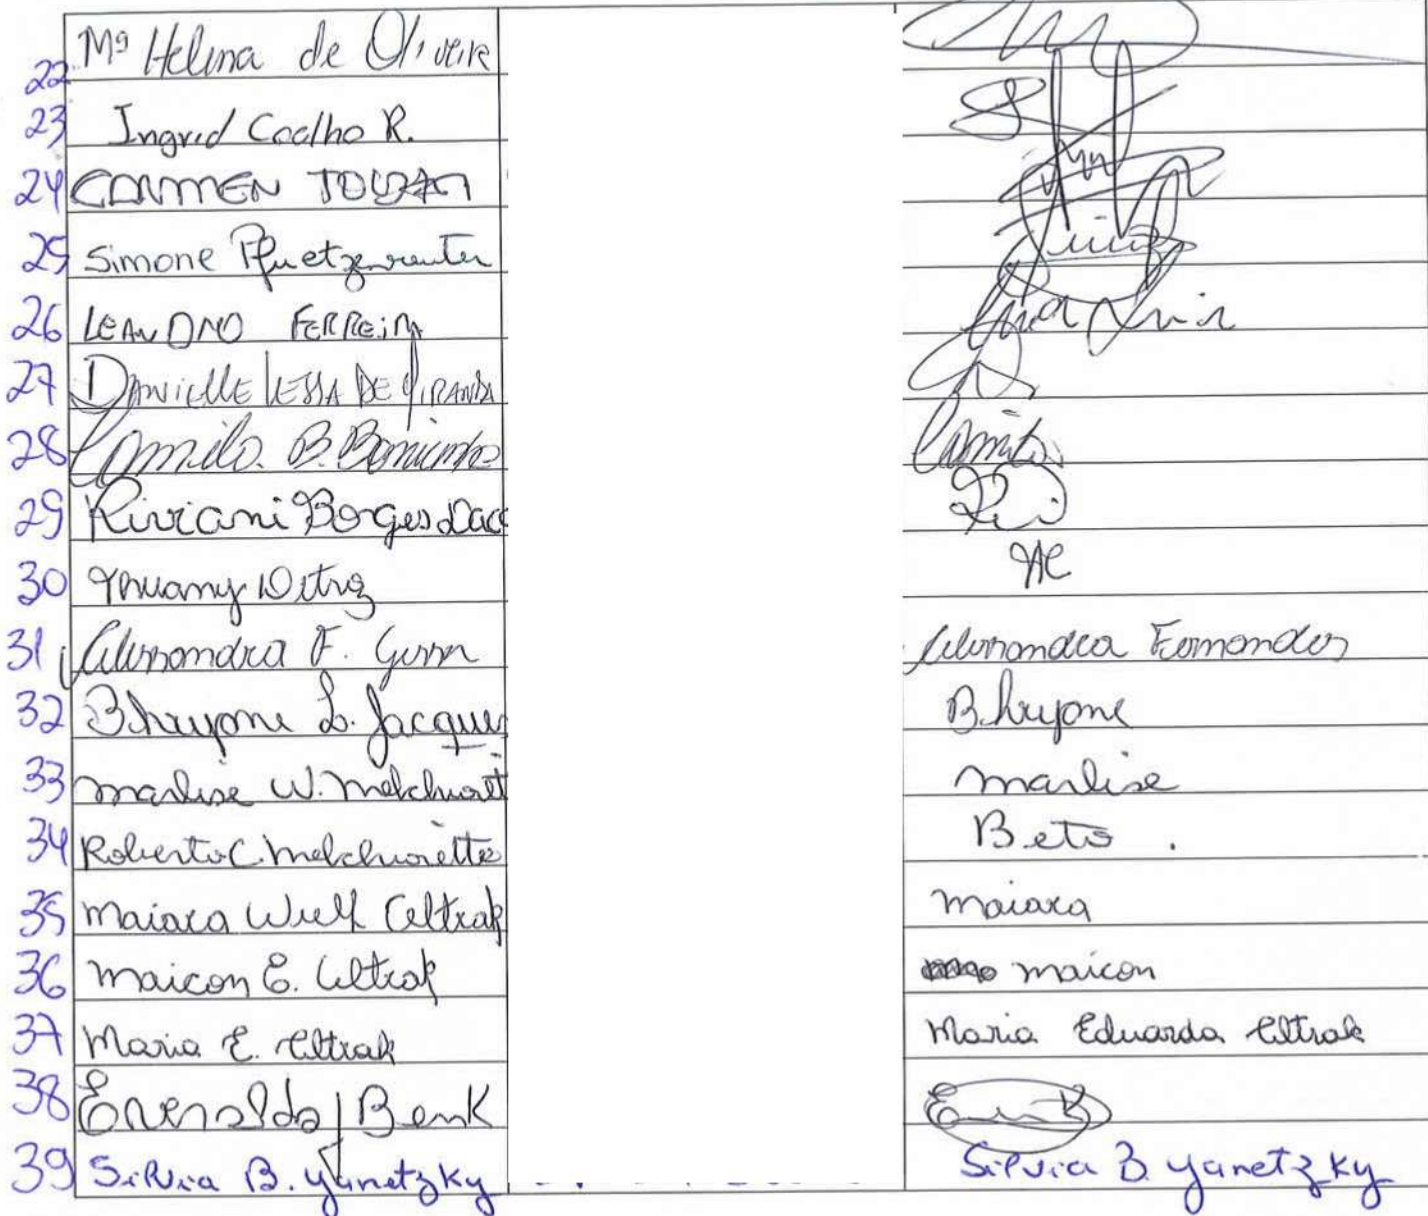 22 Mª Helena de Oliveira
23 Ingrid Coelho R.
24 CARMEN
25 Simone Pfuetzenreuter
26 LEANDRO FERREIRA
27 DANIELLE LESSA DE MIRANDA
28 Camila B. Camila
29 Riviani Borges
30 Thuany
31 Alessandra F. Alessandra Fernandes
32 Bhryone L. Jacques Bhryone
33 Marlise W. Melchiorett Marlise
34 Roberto C. Melchioretto Beto.
35 Maiara Wulf Celtrak Maiara
36 Maicon E. Celtrak Maicon
37 Maria E. Celtrak Maria Eduarda Celtrak
38 Everaldo J Benk
39 Silvia B. Yanetzky Silvia B Yanetzky